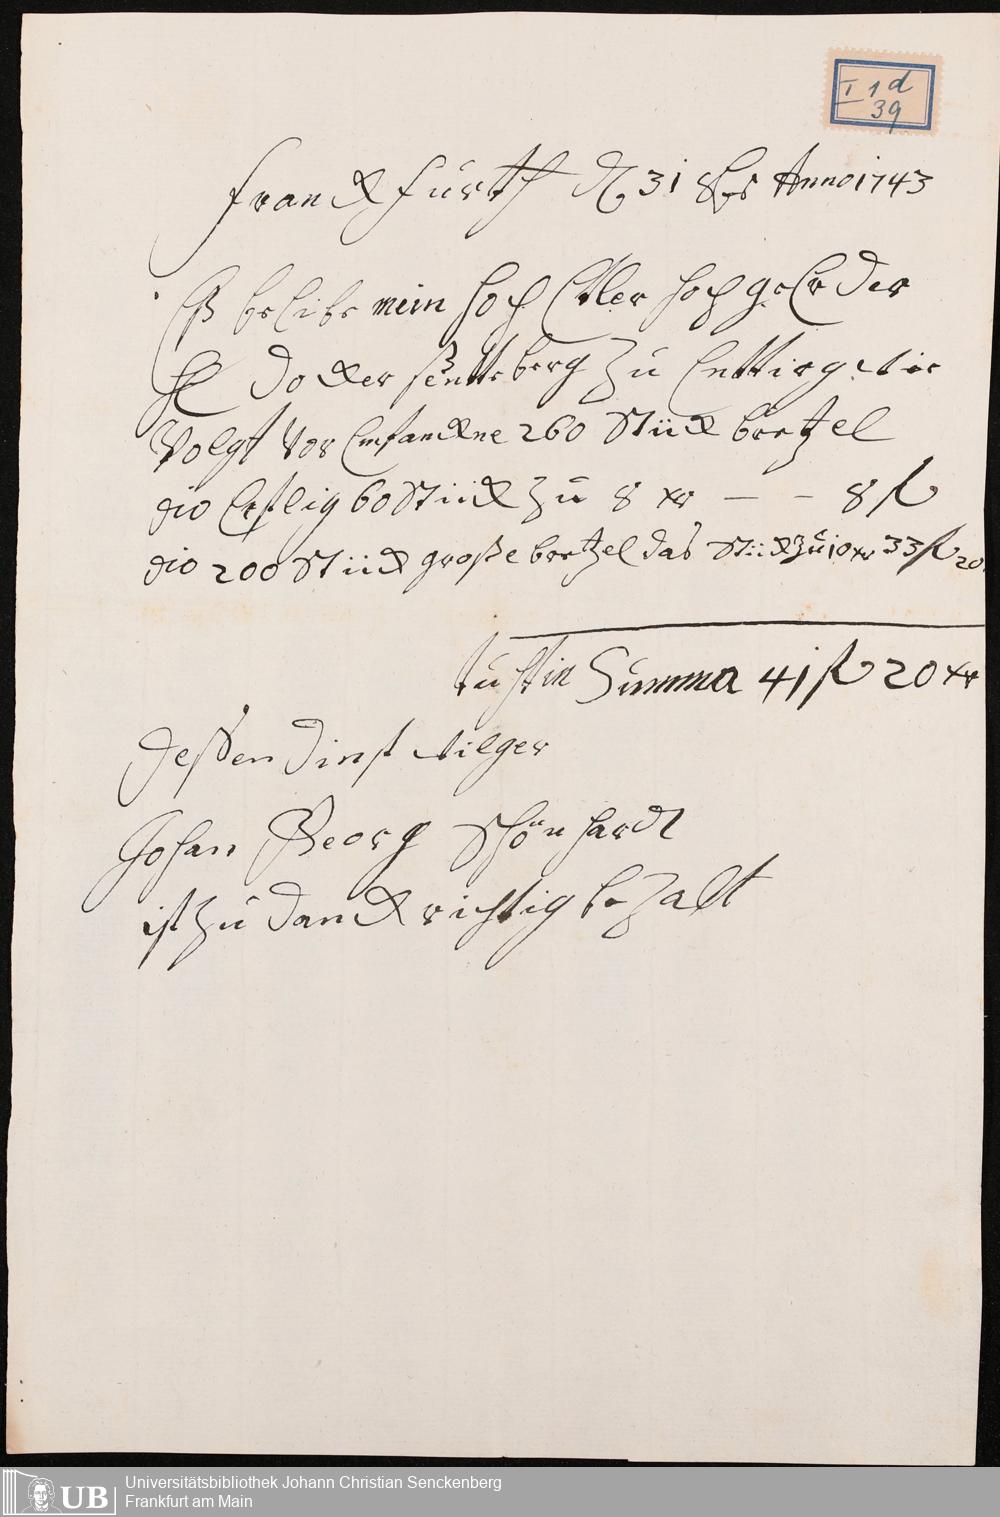 I 1 d
39
Franckfurth d. 31 8br Anno 1743
Eß belibe mein Hoch Etler Hoch geehrder
H Dockter senckeberg zu Enttrig wie
Volgt vor Emfanckne 260 Stück bretzel
die Erstlig 60 Stück zu 8 xr — — 8 fl
die 200 Stück große bretzel das Stück zu 10 xr 33 fl 20
tuht in Summa 41 fl 20 xr
dessen dinst wilger
Johan Georg Schönhardt
ist zu danck richtig bezalt
UB
Universitätsbibliothek Johann Christian Senckenberg
Frankfurt am Main